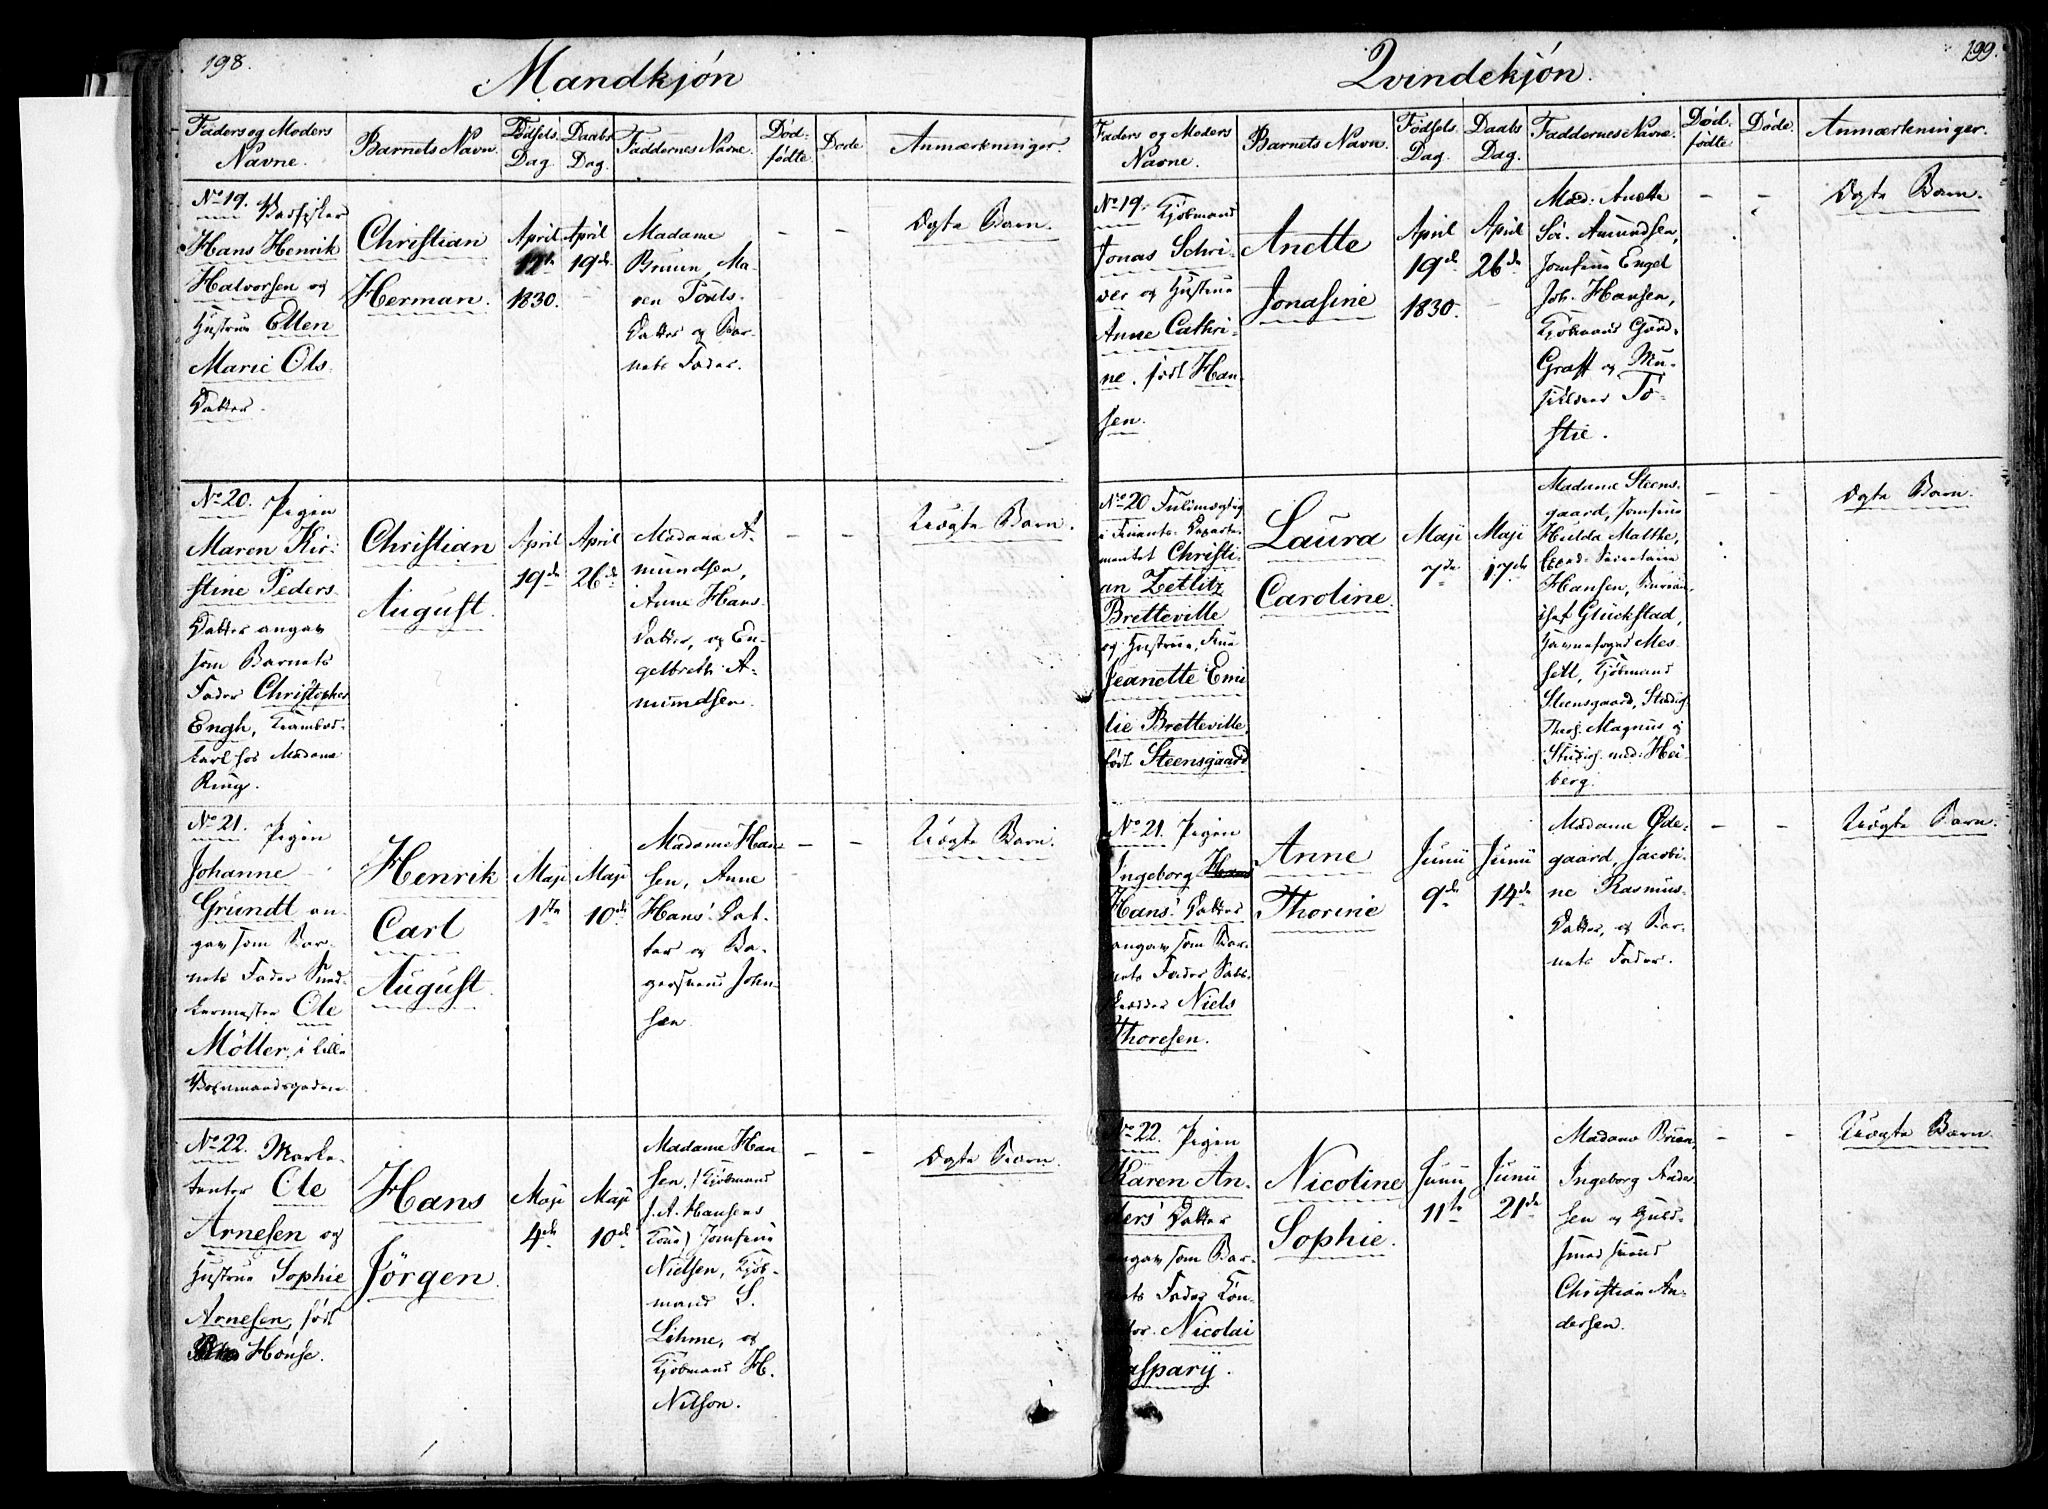 198.
Mandkjón
Faders og Moders
Navne.
Barnets Navn.
Fødsels
Dag.
Daabs
Dag.
Faddernes Navne.
Død-
fødte
Døde
Anmærkninger.
No 19.
Hans Henrik
Halvorsen og
Hustrue Ellen
Marie Ols
Datter.
Christian
Herman.
April
12te
1830.
April
19de
Madame
Bruun, Ma-
ren Pouls-
Datter og Bar-
nets Fader.
- -
Ægte Barn.
No 20. Pigen
Maren Kir-
stine Peders-
Datter angav
som Barnets
Fader Christopher
Engh, Krambod-
karl hos Madame
Ring.
Christian
August.
April
19de
April
26de
Madame A-
mundsen,
Anne Hans-
Datter, og En-
gelbreth A-
mundsen.
- -
Uægte Barn.
No 21. Pigen
Johanne
Grundt an-
gav som Bar-
nets Fader Sned-
kermester Ole
Möller, i Lille
Henrik
Carl
August.
Maji
1ste
Maji
10de
Madame Han-
sen, Anne
Hans' Dat-
ter og Ba-
gersvend John-
sen.
- -
Uægte Barn.
No 22. Marke-
tenter Ole
Arnesen og
Hustrue Sophie
Arnesen, født
Hönse.
Hans
Jörgen.
Maji
4de
Maji
10de
Madame Han-
sen, (Kjøbmand
J. A. Hansens
Kone) Jomfrue
Nielsen, Kjøb-
mand S.
Lihme, og
Kjøbmand H.
Nilson.
- -
Ægte Barn.
Qvindekjón.
199.
Faders og Moders
Navne.
Barnets Navn.
Fødsels
Dag.
Daabs
Dag.
Faddernes Navne.
Død-
fødte
Døde.
Anmærkninger.
No 19. Kjøbmand
Jonas Schri-
ver og Hustrue
Anne Cathri-
ne, født Han-
sen.
Anette
Jonasine
April
19de
1830.
April
26de
Mad: Anette
Amundsen,
Jomfrue Engel
Joh. Hansen,
Kjøbmand
Graff og Mu-
To-
stie.
- -
Ægte Barn.
No 20 Fuldmægtig
i Finants-Departe-
mentet Christi-
an Zetlitz
Bretteville
og Hustrue, Frue
Jeanette Emi
lie Bretteville,
født Steensgaard
Laura
Caroline.
Maji
7de
Maji
17de
Madame Steens-
gaard, Jomfrue
Hulda Malthe,
Hansen, Bureau-
chef Glückstad,
Mes-
sell, Kjøbmand
Steensgaard, Studios.
Theol. Magnus og
Studios. med: Hei-
berg.
- -
Ægte Barn.
No 21. Pigen
Ingeborg
Hans' Datter
angav som Bar-
nets Fader
Niels
Thoresen.
Anne
Thorine
Junii
9de
Junii
14de
Madame Øde-
gaard, Jacobi-
ne Rasmus-
Datter, og Bar-
nets Fader.
- -
Uægte Barn.
No 22. Pigen
Karen An-
ders' Datter
angav som Bar-
nets Fader Kon-
Nicolai
Caspary.
Nicoline
Sophie.
Junii
11te
Junii
21de
Madame Bruun,
Ingeborg Ander-
sen og Guld-
smedsvend
Christian An-
dersen.
- -
Uægte Barn.